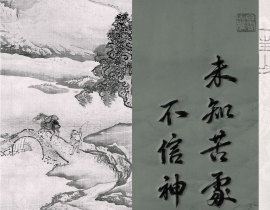 未知苦處
不信神